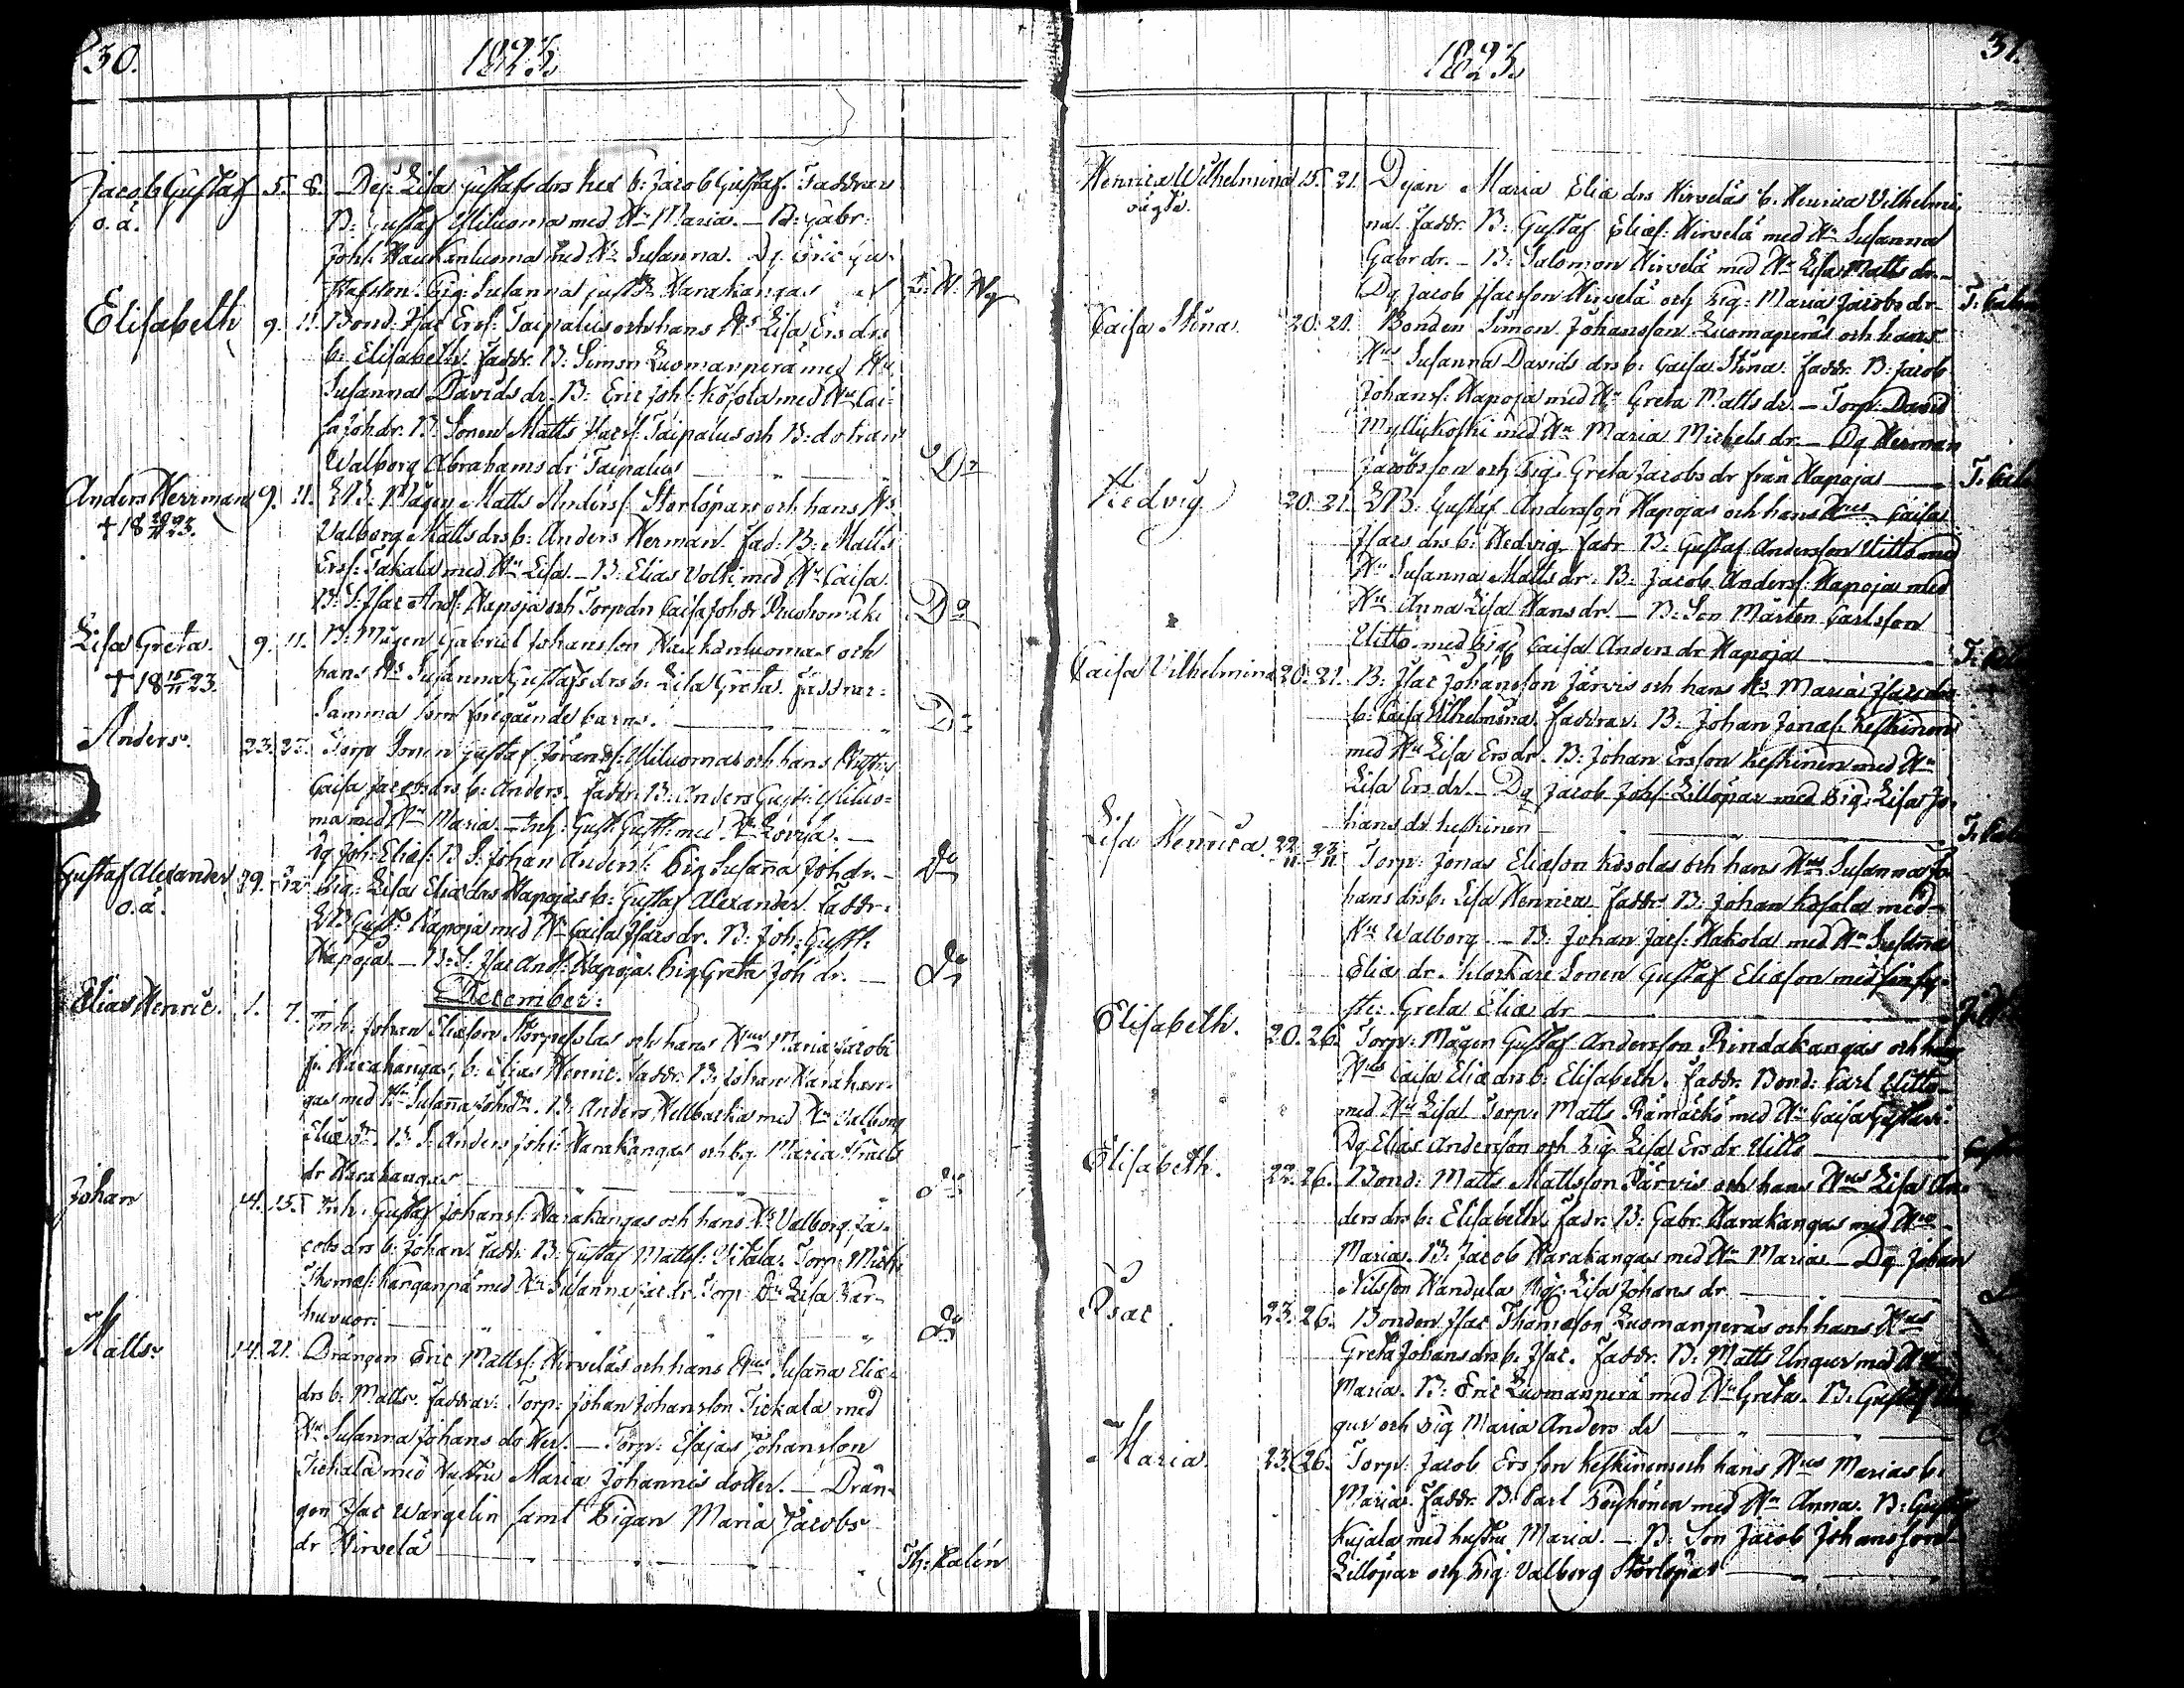 30.
1823.
Jacob Gustaf 5. 8. Dej: Lisa Gustafs drs b: Jacob Gustaf. Faddrar
o.ä. B: Gustaf Yliluoma med Hu Maria. — B: Gabr:
Johs: Haukanluoma med Hu Susanna. Dg Eric Gu-
stafsson. Pig: Susanna Gust dr Harakangas
Elisabeth 9. 11. Bond. Isac Ers: Taipalus och hans Hs Lisa Ers drs
b: Elisabeth. Faddr. B: Simon Luomanperä med Hu
Susanna Davids dr. B: Eric Johs: Kosola med Hu Cai-
sa Joh dr. B Sonen Matts Isacs: Taipalus och B: dotran
Walborg Abrahams dr Taipalus Do
Anders Herrman 9. 11. B: Mågen Matts Anders: Storlopars och hans Hs
Valborg Matts drs b: Anders Herman. Fad: B: Matts
Ers: Takala med Hu Lisa. — B: Elias Volti med Hu Caisa.
B: S: Isac Ands: Hapoja och Torp dr Caisa Joh dr Do
Lisa Greta. 9. 11. B: Mågen Gabriel Johansson Haukanluomas och
† 18 15/11 23. hans Hs Susanna Gustafs drs b: Lisa Greta. Faddrar:
Samma som föregående barns. Do
Anders. 23. 27. Torp Sonen Gustaf Yliluomas och hans Hustru
Caisa Jacobs drs b: Anders. Faddr. B: Anders Gust: Yliluo-
ma med Hu Maria. — Inh: Gust: Gusts: med Hu Lovisa. —
Dg Joh: Elias: B S: Johan Anders: Pig Susanna Joh dr. — Do
Gustaf Alexander 29. Pig: Lisa Elia drs Hapojas b: Gustaf Alexander. Faddr:
o.ä. B Gust: Hapoja med Hu Caisa Isacs dr. B: Joh: Gusts:
Hapoja. — B: S: Isac Ands: Hapoja. Pig Greta Joh dr. — Do
December:
Elias Henric. 1. 7. Inh: Johan Eliasson och hans Hus Maria Jacobs
fr. Harakangas, b: Elias Henric. Faddr. B: Johan Harakan-
gas med Hu Susanna Joh dr. B: Anders Hellbacka med Hu Valborg
Elia dr — B: S: Anders Johs: Harakangas och Pig Maria
dr Harakangas Do
Johan 14. 15. Inh: Gustaf Johans: Harakangas och hans Hs Valborg Ja-
cobs drs b: Johan. Faddr. B: Gustaf Matts: Vitala. Torp: Mich:
Thomas: Kanganpä med Hu Susanna Isac dr. Torp Lisa Kar-
huvuori Do
Matts. 14. 21. Drängen Eric Matts: Hirveläs och hans Hus Susanna Elia
drs b: Matts. Faddrar: Torp: Johan Johansson Tiekala med
Hu Susanna Johans dotter. — Torp: Esajas Johansson
Tiekala med Hustru Maria Johannis dotter. — Drän-
gen Isac Wargelin samt Pigan Maria Jacobs
dr Hirvelä Th: Calén
1823.
31.
Henrica Wilhelmina 15. 21. Dejan Maria Elia drs Hirveläs b: Henrica Vilhelmi-
oägta. na. Faddr. B: Gustaf Elias: Hirvelä med Hu Susanna
Gabr dr. — B: Salomon Hirvelä med Hu Lisa Matts dr. —
Dg Jacob Isacsson Hirvelä och Pig: Maria Jacobs dr
Caisa Stina. 20. 21. Bonden Simon Johansson Luomaperäs och hans
Hus Susanna Davids drs b: Caisa Stina. Faddr. B: Jacob
Johans: Hapoja med Hu Greta Matts dr. — Torp: David
Myllykoski med Hu Maria Michels dr. — Dg Herman
Jacobsson och Pig: Greta Jacobs dr från Hapoja
Hedvig 20. 21. B: Gustaf Andersson Hapojas och hans Hus Caisa
Isacs drs b: Hedvig. Fadr B: Gustaf Andersson Uitto med
Hu Susanna Matts dr. B: Jacob Anders: Hapoja med
Hu Anna Lisa Hans dr. — B: Son Mårten Carlsson
Uitto med Pig: Caisa Anders dr Hapoja
Caisa Vilhelmina 20. 21. B: Isac Johansson Järvis och hans Hs Maria Isacs drs
b: Caisa Vilhelmina. Faddrar. B: Johan Jonas: Keskinen
med Hu Lisa Ers dr. B: Johan Ersson Keskinen med Hu
Lisa Ers dr. — Dg Jacob Johs: Lillopar med Pig: Lisa Jo-
hans dr Keskinen
Lisa Henrica. 22/11 23/11 Torp: Jonas Eliasson Kosolas och hans Hus Susanna Jo-
hans drs b: Lisa Henrica. Faddr. B: Johan Kosola med
Hu Walborg. — B: Johan Jacs: Hakola med Hu Susanna
Elia dr. Klockare Sonen Gustaf Eliasson med sin sy-
ster Greta Elia dr
Elisabeth. 20. 26. Torp: Mågen Gustaf Andersson Rindakangas och hans
Hus Caisa Elia drs b: Elisabeth. Faddr. Bond: Carl Uitto
med Hu Lisa. Torp: Matts Rämäckö med Hu Caisa
Dg Elias Andersson och Pig Lisa Ers dr Uitto
Elisabeth. 22. 26. Bond: Matts Mattsson Järvis och hans Hus Lisa An-
ders drs b: Elisabeth. Fadr. B: Gabr. Harakangas med Hu
Maria. B: Jacob Harakangas med Hu Maria. — Dg Johan
Nilsson Handula Pig: Lisa Johans dr
Isac. 23. 26. Bonden Isac Thomasson Luomanperäs och hans Hus
Greta Johans drs b: Isac. Faddr. B: Matts Ungur med Hu
Maria. B: Eric Luomanperä med Hu Greta. B: Gustaf Un-
gur och Pig Maria Anders dr
Maria. 23. 26. Torp: Jacob Ersson Keskinens och hans Hus Marias b:
Maria. Faddr. B: Carl Pöyhönen med Hu Anna. B: Gustaf
Kujala med hustru Maria. — B: Son Jacob Johansson
Lillopar och Pig: Valborg Storlopar